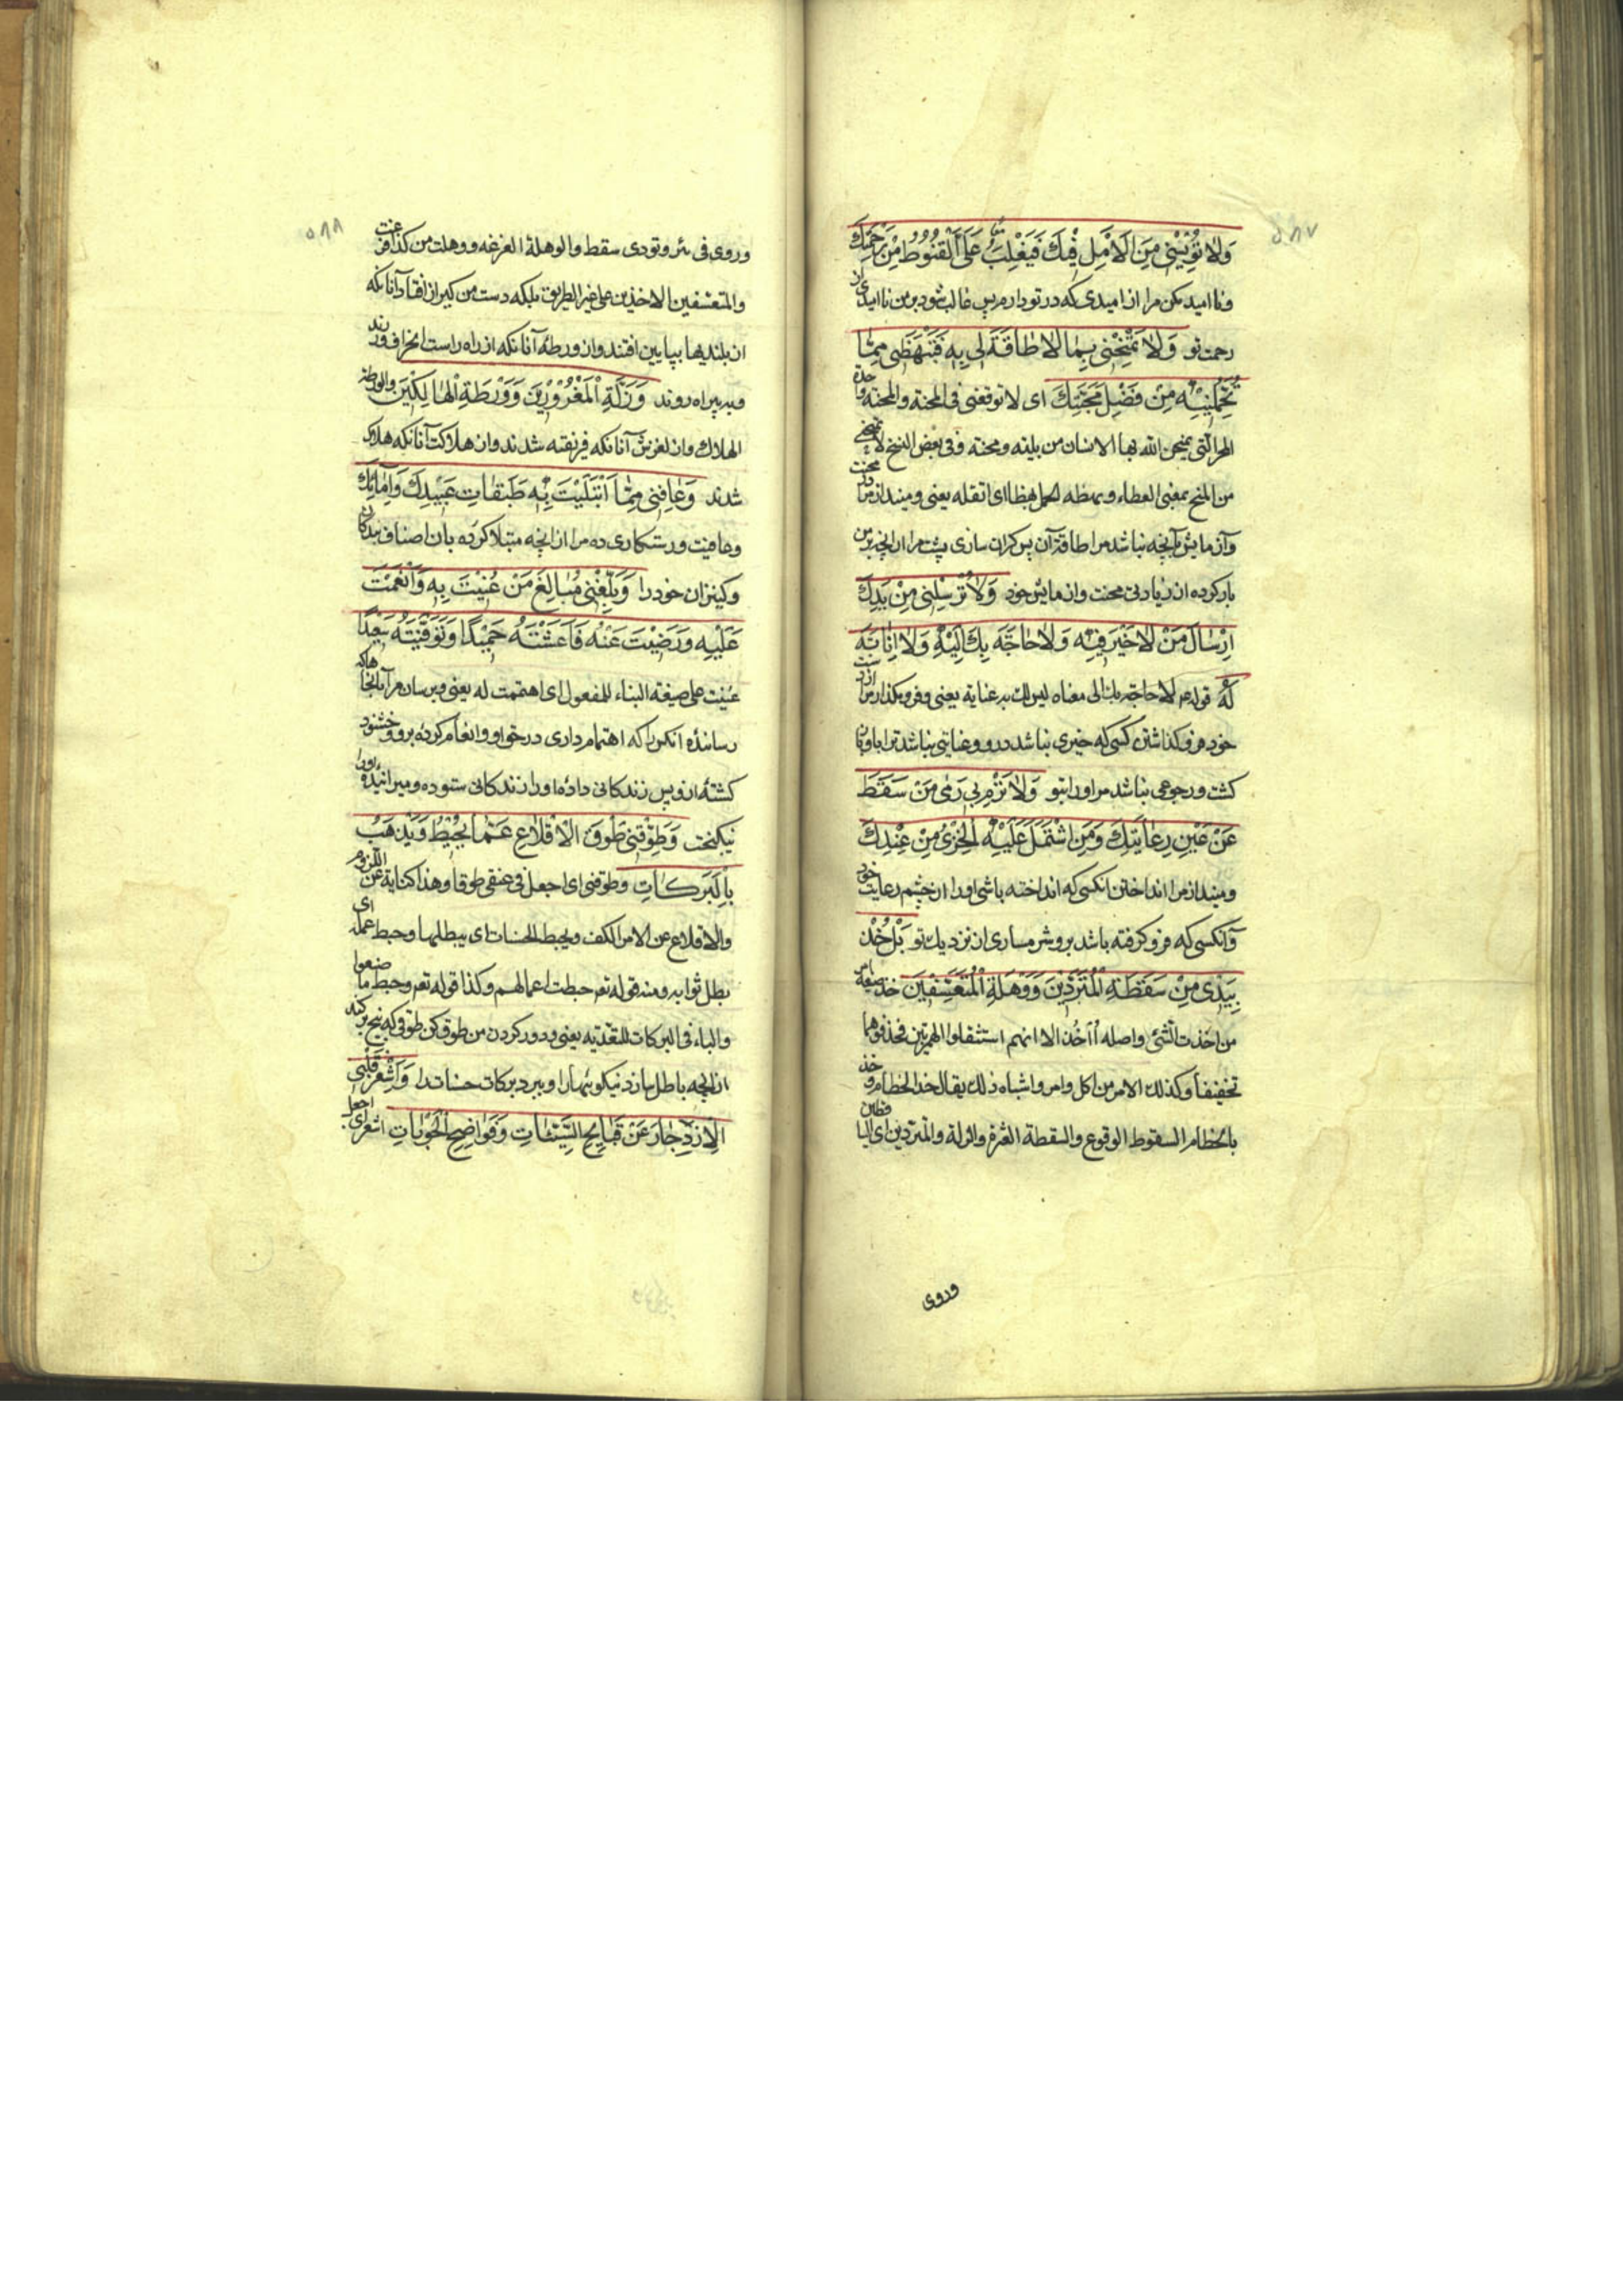 ٥٨٧
وَلَا تُؤْيِسْنِي مِنَ الْاَمَلِ فِيكَ فَيَغْلِبَ عَلَيَّ الْقُنُوطُ مِنْ رَحْمَتِكَ
ونااميد مكن مرا از اميدى كه در تو دارم پس غالب شود بر من نااميدى از
رحمت تو وَلَا تَمْتَحِنِّي بِمَا لَا طَاقَةَ لِي بِهِ فَتَبْهَظَنِي مِمَّا
تُحَمِّلُنِيهِ مِنْ فَضْلِ مَحَبَّتِكَ اى لا توقعنى فى المحنة والمحنة واحدة
المحن التى يمتحن الله بها الانسان من بليه ومحنة وفى بعض النسخ لا تمنحنى
من المنح بمعنى العطاء وبهظه الحمل بهظا اى اثقله يعنى وميندازمرا در محنت
وآزمايش بآنچه نباشد مرا طاقة آن پس گران سازى پشت مرا از انچه بر من
بار كرده از زيادتى محنت وازمايش خود وَلَا تُرْسِلْنِي مِنْ يَدِكَ
اِرْسَالَ مَنْ لَا خَيْرَ فِيهِ وَلَا حَاجَةَ بِكَ اِلَيْهِ وَلَا اِنَابَةَ
لَهُ قوله ع لا حاجة بك الى معناه ليس لك به عناية يعنى وفرو مگذار مرا از دست
خود فرو گذاشتن كسى كه خيرى نباشد درو وعنايتى نباشد ترا باو وباز
گشت ورجوعى نباشد مر او را بتو وَلَا تَرْمِ بِي رَمْيَ مَنْ سَقَطَ
عَنْ عَيْنِ رِعَايَتِكَ وَمَنِ اشْتَمَلَ عَلَيْهِ الْخِزْيُ مِنْ عِنْدِكَ
وميندازمرا انداختن انكسى كه انداخته باشى او را از چشم رعايت خود
وآنكسى كه فرو گرفته باشد برو شرمسارى از نزديك تو بَلْ خُذْ
بِيَدِي مِنْ سَقْطَةِ الْمُتَرَدِّينَ وَوَهْلَةِ الْمُتَعَسِّفِينَ خذ صيغة امر
من اخذت الشئ واصله أأخذ الا انهم استثقلوا الهمزتين فحذفوهما
تخفيفا وكذلك الامر من اكل وامر واشباه ذلك يقال خذ الخطام وخذ
بالخطام السقوط الوقوع والسقطة العثرة والزلة والمتردين اى
وروى
٥٨٨
وروى فى بئر وتودى سقط والوهلة الفزعة ووهلت من كذا فزعت
والمتعسفين الاخذين على غير الطريق بلكه دست من گير از افتادن آنانكه
از بلنديها بپايين افتند واز ورطه آنانكه از راه راست انحراف ورزند
وبه بيراه روند وَزَلَّةِ الْمَغْرُورِينَ وَوَرْطَةِ الْهَالِكِينَ والورطة
الهلاك واز لغزش آنانكه فريفته شدند واز هلاكت آنانكه هلاك
شدند وَعَافِنِي مِمَّا ابْتَلَيْتَ بِهِ طَبَقَاتِ عَبِيدِكَ وَاِمَائِكَ
وعافيت ورستگارى ده مرا از انچه مبتلا كرده بان اصناف بندگان
وكنيزان خود را وَبَلِّغْنِي مَبَالِغَ مَنْ عُنِيتَ بِهِ وَاَنْعَمْتَ
عَلَيْهِ وَرَضِيتَ عَنْهُ فَاَعَشْتَهُ حَمِيدًا وَتَوَفَّيْتَهُ سَعِيدًا
عنيت على صيغة البناء للمفعول اى اهتممت له يعنى وبرسان مرا بآنجاها كه
رسانده انكس را كه اهتمام دارى در حق او وانعام كرده برو وخشنود
گشته از و پس زندگانى داده او را زندگانى ستوده وميرانيده او را
نيكبخت وَطَوِّقْنِي طَوْقَ الْاِقْلَاعِ عَمَّا يُحْبِطُ وَيَذْهَبُ
بِالْبَرَكَاتِ وطوقنى اى اجعل فى عنقى طوقا وهذا كناية عن اللزوم
والاقلاع عن الامر الكف ويحبط الحسنات اى يبطلها وحبط عمله اى
بطل ثوابه ومنه قوله تعم حبطت اعمالهم وكذا قوله تعم وحبط ما صنعوا
والباء فى البركات للتعدية يعنى ودور كردن من طوق كن طوقى كه بيخ بركند
از انچه باطل سازد نيكوئيها را وببرد بركات حسنات را وَاَشْعِرْ قَلْبِيَ
الْاِزْدِجَارَ عَنْ قَبَائِحِ السَّيِّئَاتِ وَفَوَاضِحِ الْحَوْبَاتِ اشعر اى اجعل